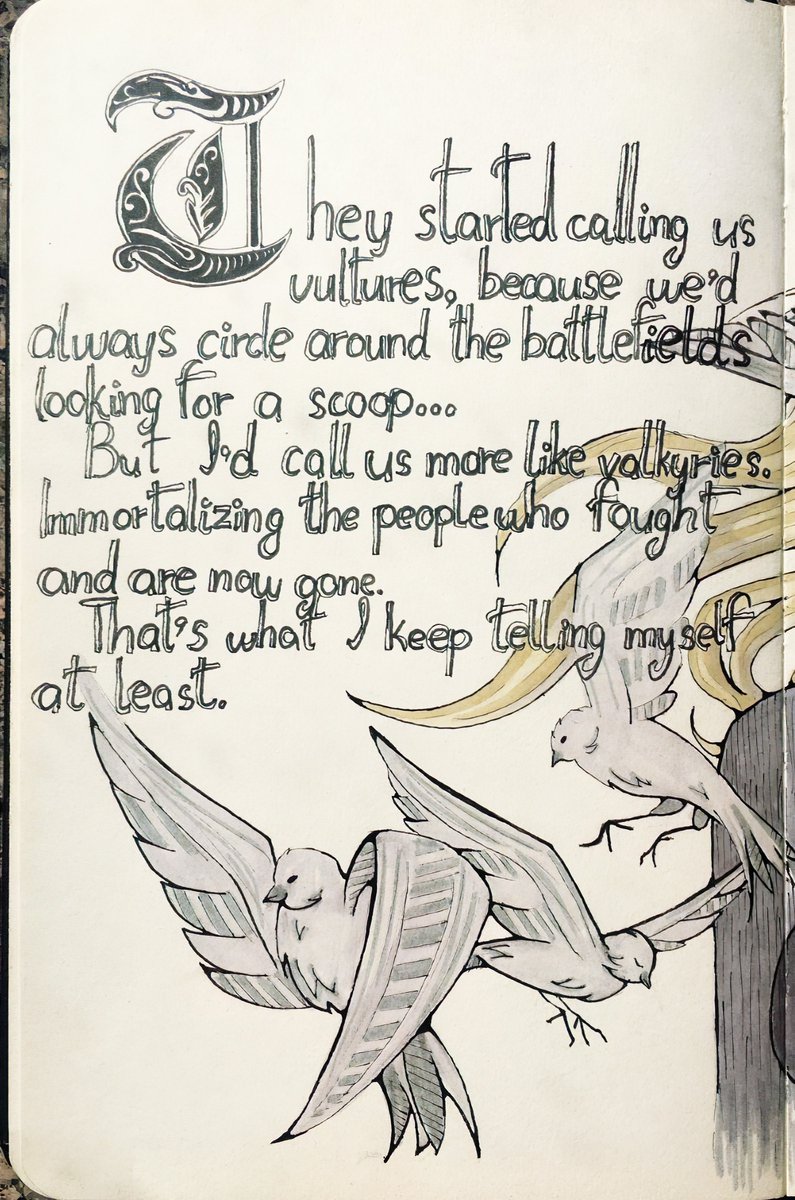 They started calling us
vultures, because we'd
always circle around the battlefields
looking for a scoop...
But I'd call us more like valkyries.
Immortalizing the people who fought
and are now gone.
That's what I keep telling myself
at least.